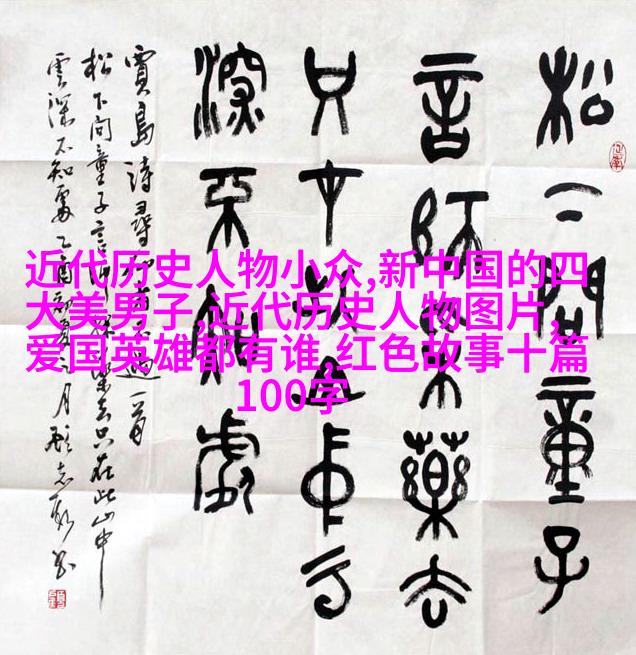 近代历史人物小众,新中国的四
大美男子,近代历史人物图片,
爱国英雄都有谁,红色故事十篇
100字
松下問童子
言師采藥去
只在此山中云
深不知處
賈島詩尋隱者不遇一首
松下問童子言師采藥去只在此山中
雲深不知處乙酉